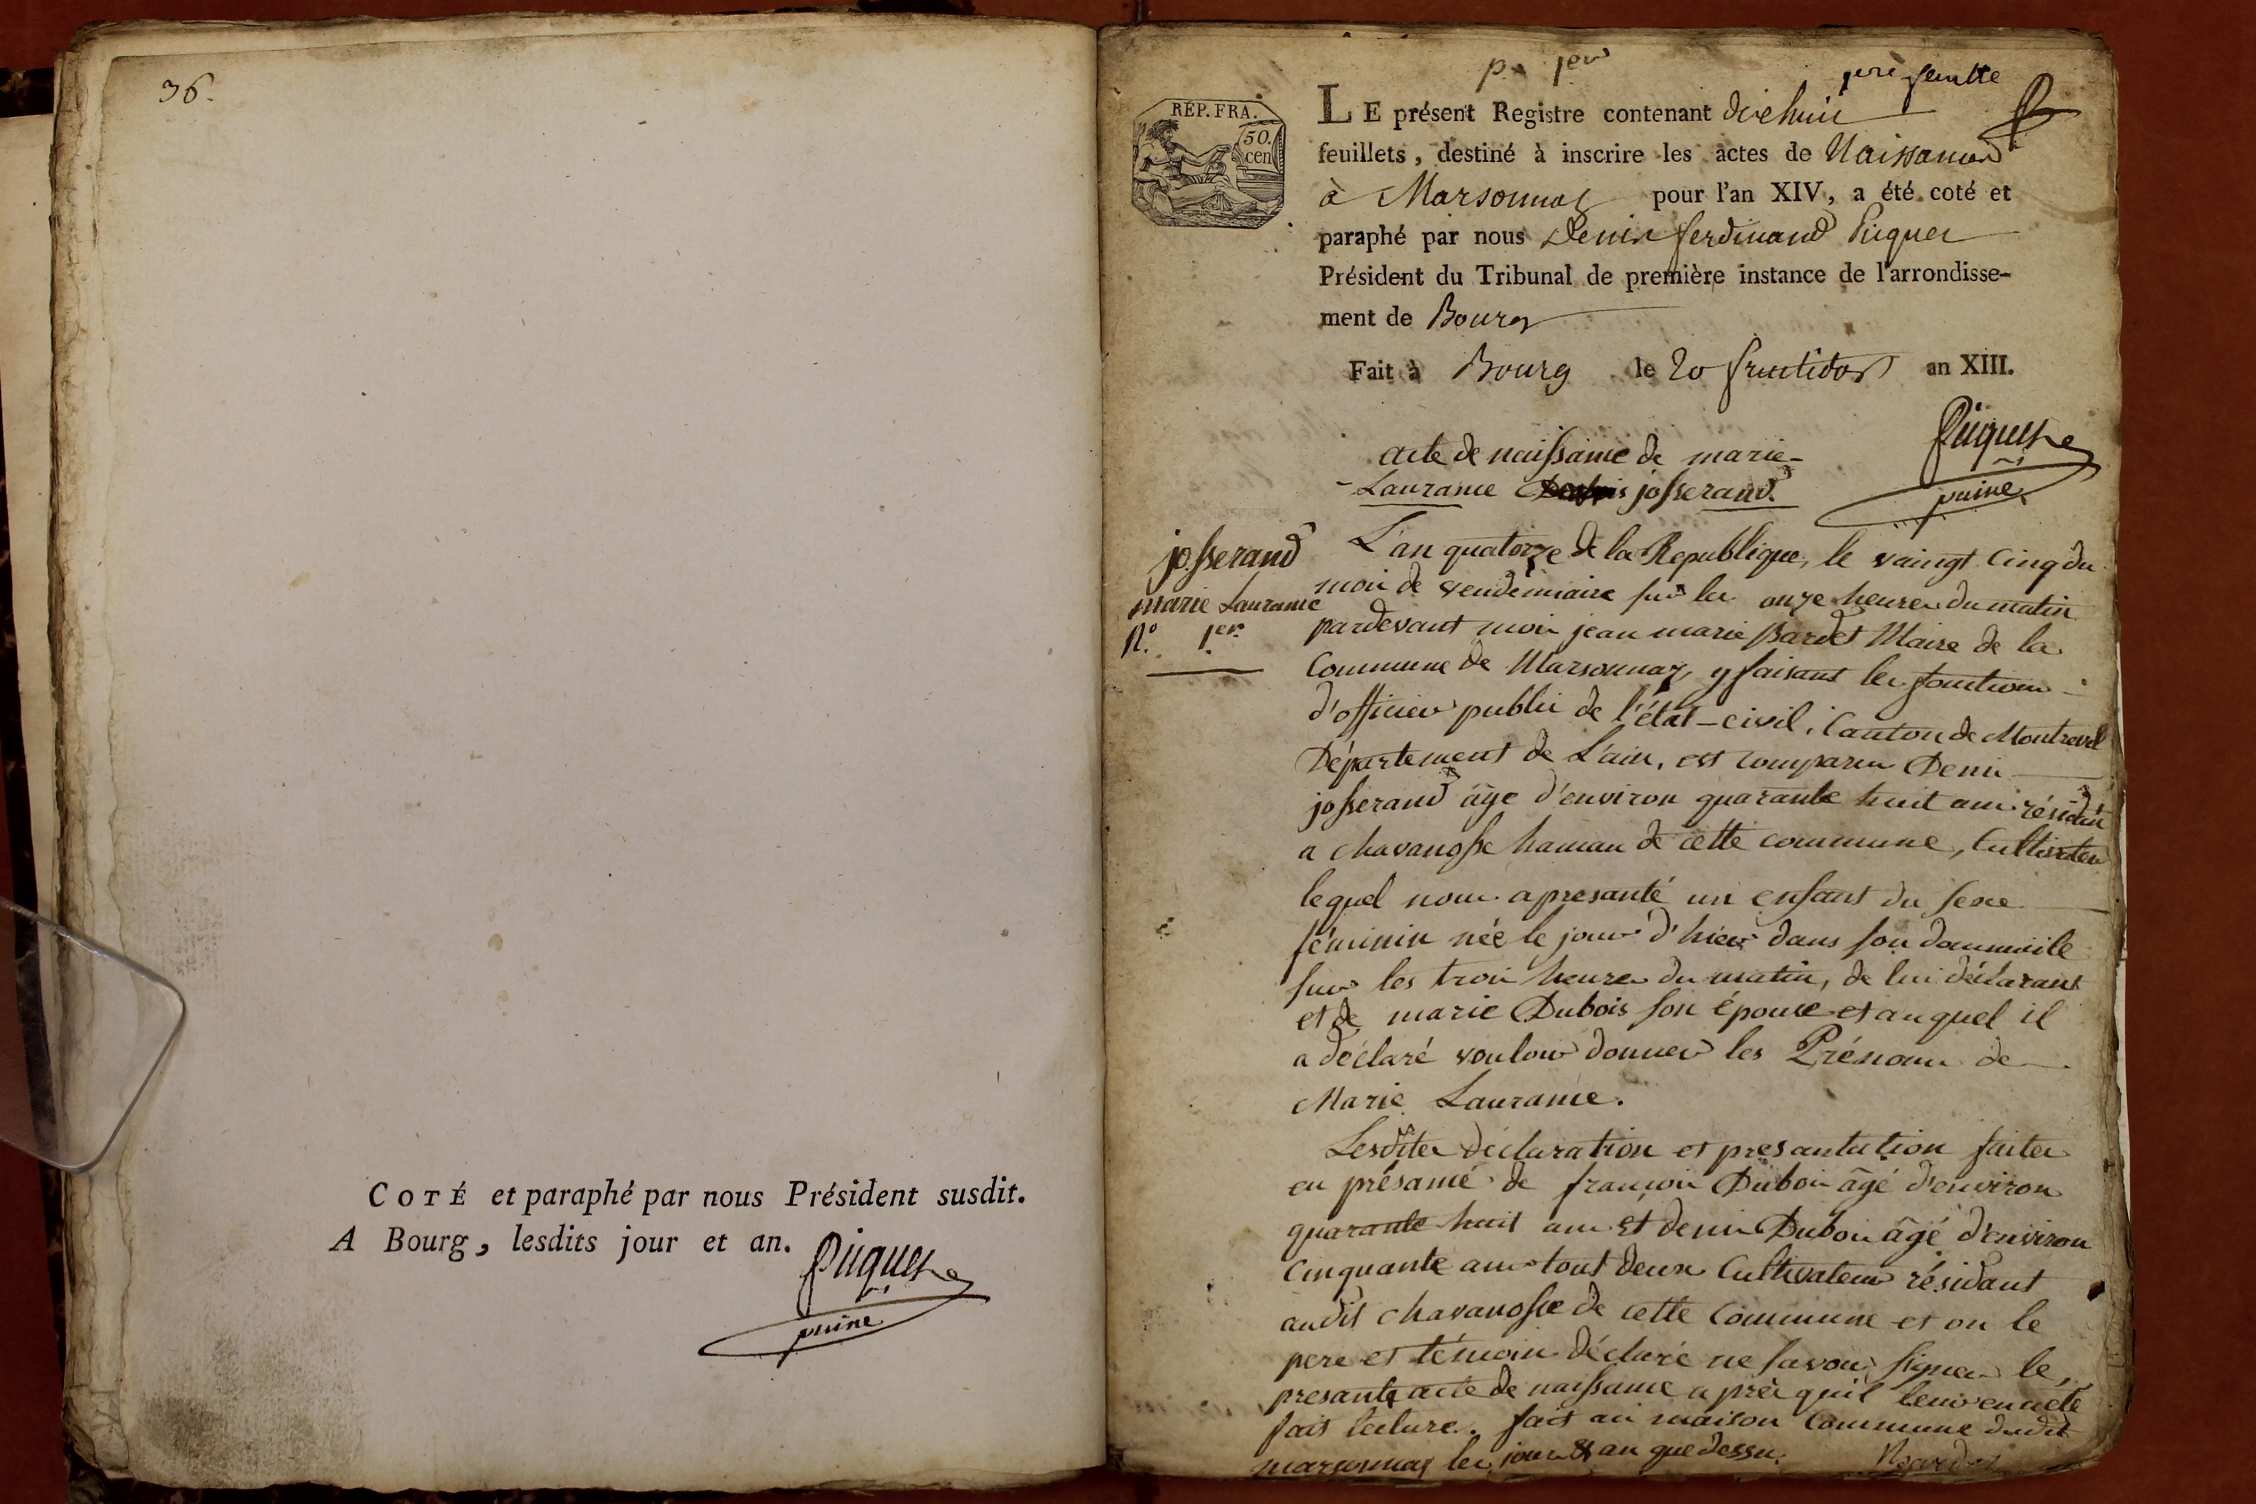 36.
COTÉ et paraphé par nous Président susdit.
A Bourg, lesdits jour et an.
Piquet
puiné
pr. 1er
1ere feuille
RÉP. FRA.
50.
cen
LE présent Registre contenant dixhuit
feuillets, destiné à inscrire les actes de Naissances
à Marsonnas pour l'an XIV, a été coté et
paraphé par nous Denis ferdinand Piquet
Président du Tribunal de première instance de l'arrondisse-
ment de Bourg
Fait à Bourg le 20 fructidor an XIII.
Piquet
puiné
acte de naissance de marie-
-Laurance josserand.
josserand
marie Laurance
N.° 1er.
L'an quatorze de la Republique, le vaingt cinq du
mois de vendémiaire sur les onze heures du matin
pardevant moi jean marie Bardet Maire de la
Commune de Marsonnaz, y faisant les fonctions
d'officier public de l'état-civil, Canton de Montrevel
Département de L'ain, est comparu Denis
josserand âge d'environ quarante huit ans résidant
a chavanosse hamau de cette commune, Cultivateur
lequel nous a presanté un enfant du sexe
féminin née le jour d'hier dans son dommicile
sur les trois heures du matin, de lui déclarant
et de marie Dubois son épouse et auquel il
a déclaré vouloir donner les Prénoms de
Marie Laurance.
Lesdites déclaration et presantation faites
en présance de francois Dubois âgé d'environ
quarante huit ans et denis Dubois âgé d'environ
Cinquante ans tout deux Cultivateurs résidant
audit chavanosse de cette Commune et on le
pere et témoins déclaré ne savoir signer le,
presante acte de naissance après qu'il leur en a été
fait lecture. fait en maison Commune dudit
marsonnas les jour & an que dessus. Bardet